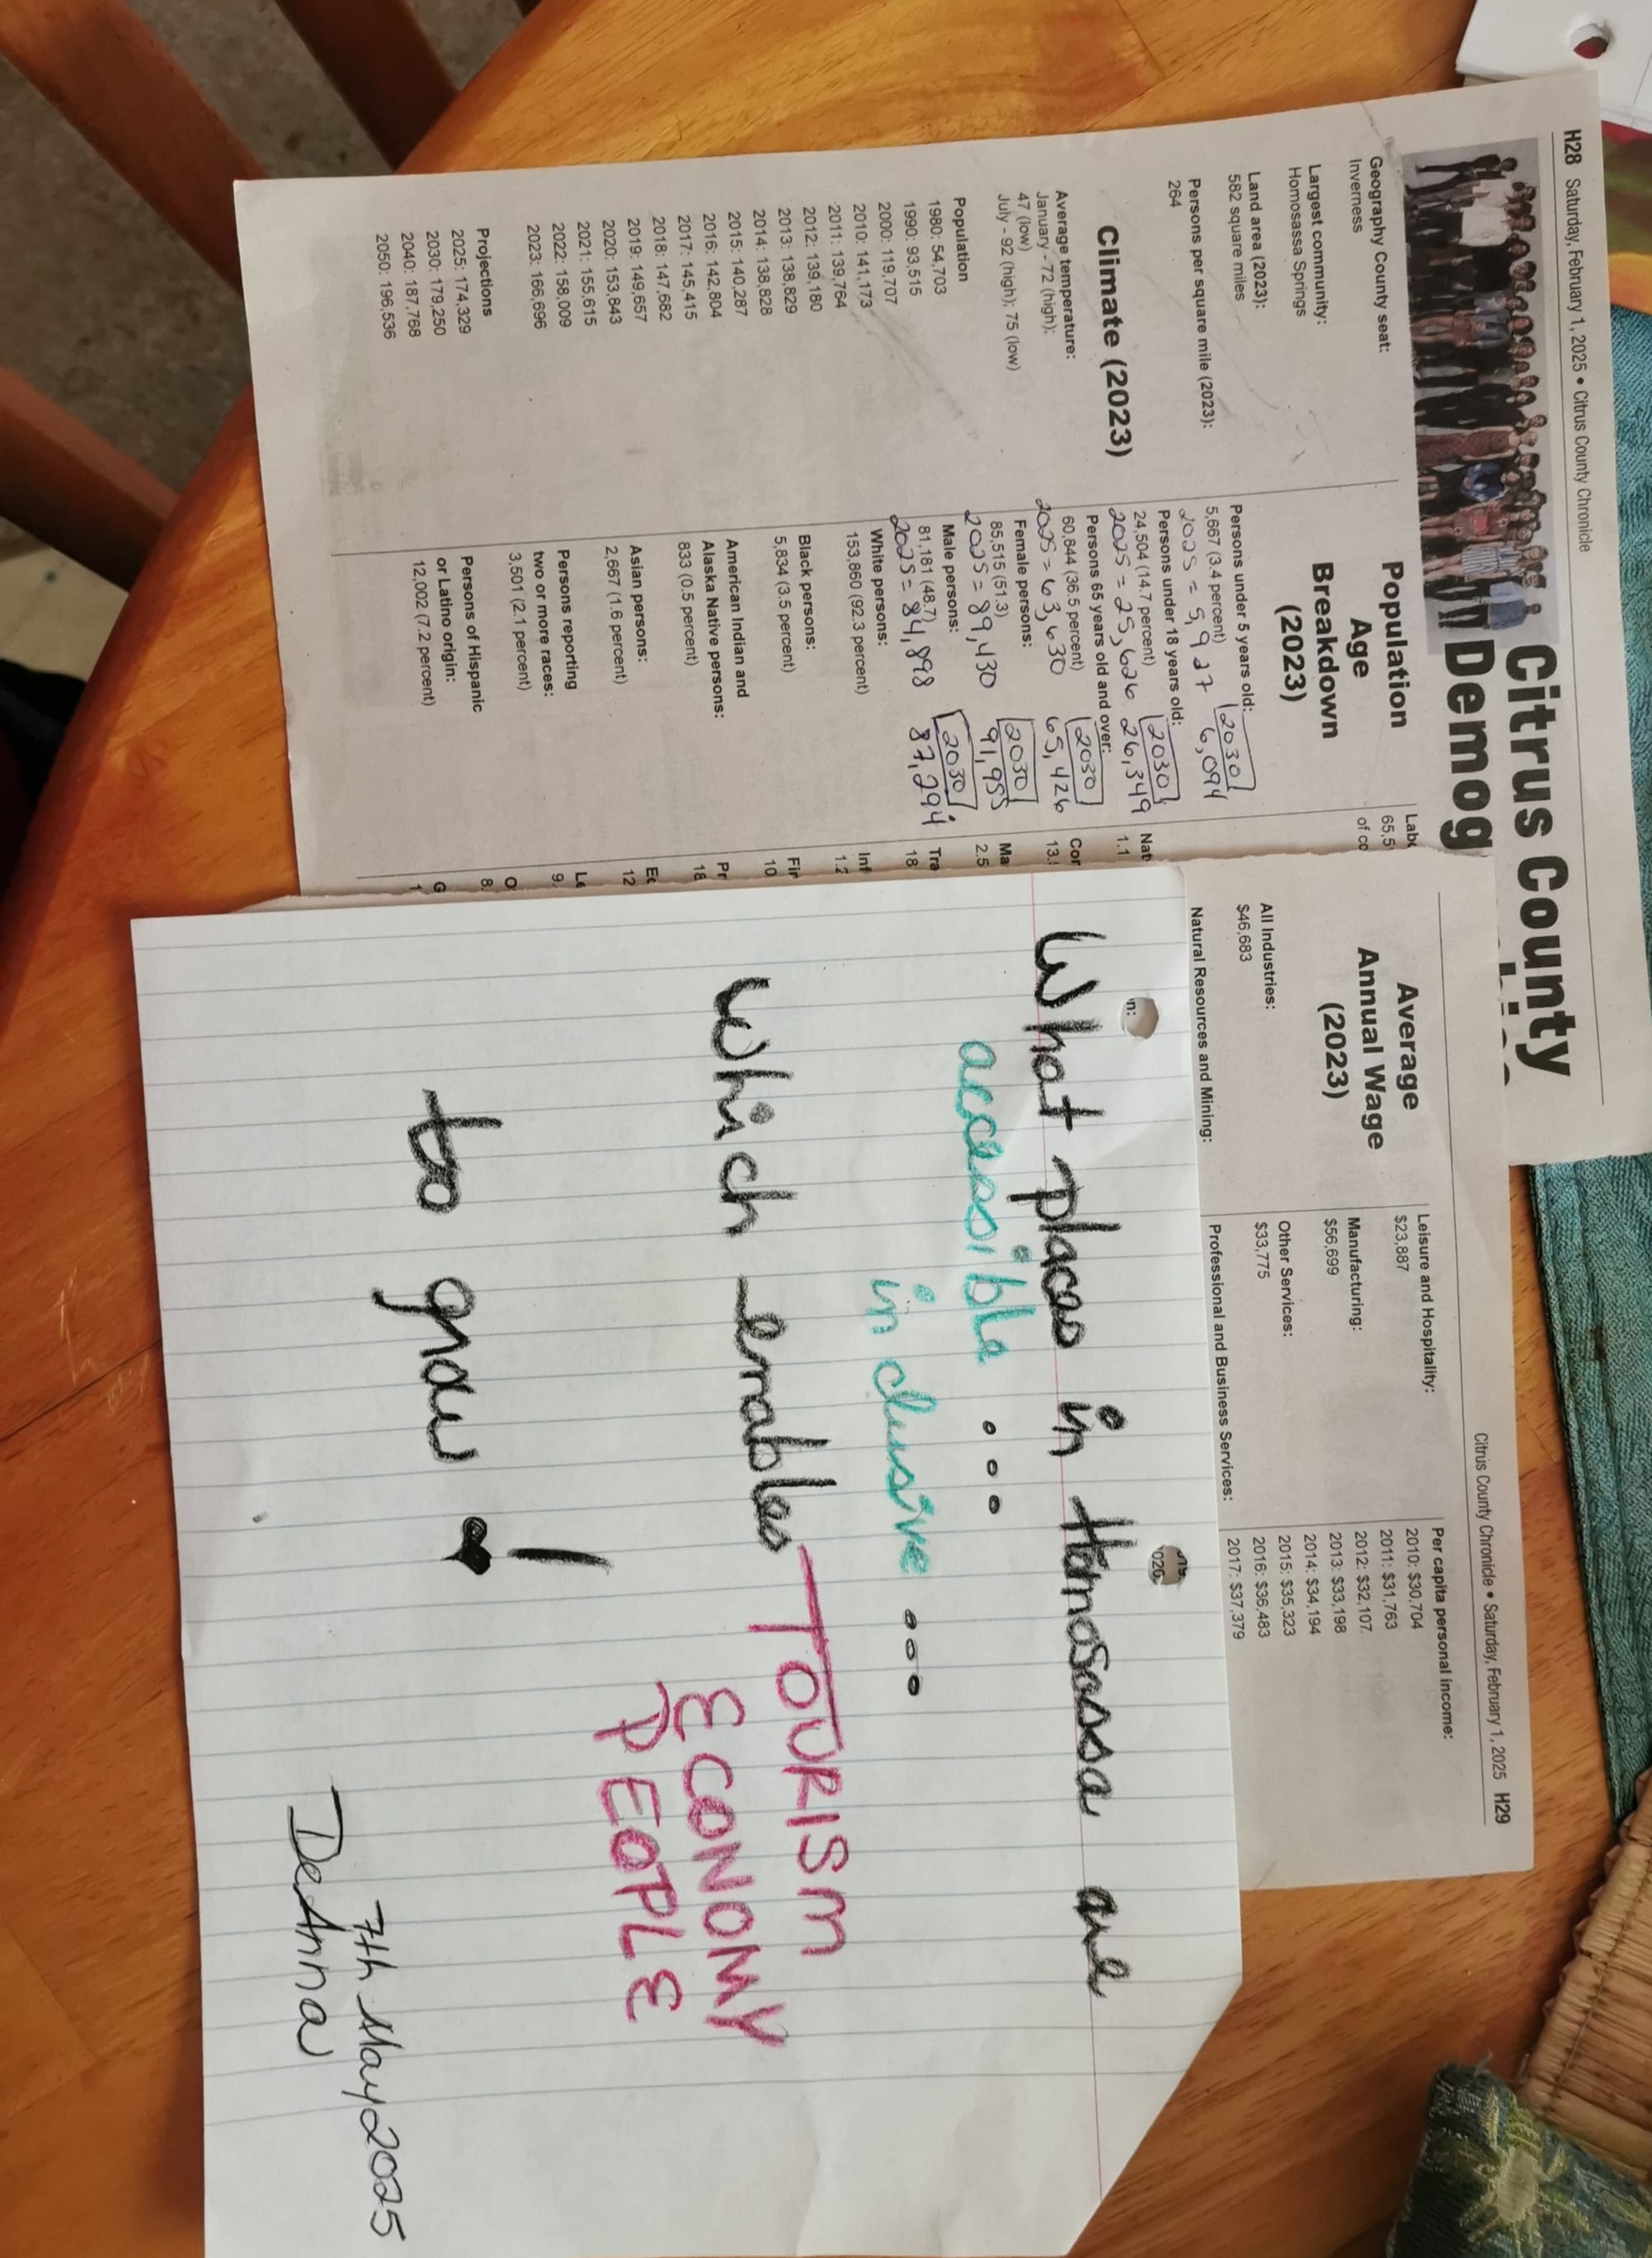 H28 Saturday, February 1, 2025 • Citrus County Chronicle
Citrus County
Demog
Geography County seat:
Inverness
Largest community:
Homosassa Springs
Land area (2023):
582 square miles
Persons per square mile (2023):
264
Climate (2023)
Average temperature:
January - 72 (high):
47 (low)
July - 92 (high); 75 (low)
Population
1980: 54,703
1990: 93,515
2000: 119,707
2010: 141,173
2011: 139,764
2012: 139,180
2013: 138,829
2014: 138,828
2015: 140,287
2016: 142,804
2017: 145,415
2018: 147,682
2019: 149,657
2020: 153,843
2021: 155,615
2022: 158,009
2023: 166,696
Projections
2025: 174,329
2030: 179,250
2040: 187,768
2050: 196,536
Population
Age
Breakdown
(2023)
Persons under 5 years old:
5,667 (3.4 percent)
2025 = 5,927
2030
6,094
Persons under 18 years old:
24,504 (14.7 percent)
2025 = 25,626
2030
26,349
Persons 65 years old and over:
60,844 (36.5 percent)
2025 = 63,630
2030
65,426
Female persons:
85,515 (51.3)
2025 = 89,430
2030
91,955
Male persons:
81,181 (48.7)
2025 = 84,898
2030
87,294
White persons:
153,860 (92.3 percent)
Black persons:
5,834 (3.5 percent)
American Indian and
Alaska Native persons:
833 (0.5 percent)
Asian persons:
2,667 (1.6 percent)
Persons reporting
two or more races:
3,501 (2.1 percent)
Persons of Hispanic
or Latino origin:
12,002 (7.2 percent)
Labo
65,5
of co
Nat
1.1
Cor
13.
Ma
2.5
Tra
18
Inf
1.2
Fir
10
Pr
18
Ed
12
Le
9.
O
8.
G
1
Citrus County Chronicle • Saturday, February 1, 2025 H29
Average
Annual Wage
(2023)
All Industries:
$46,683
Natural Resources and Mining:
Leisure and Hospitality:
$23,887
Manufacturing:
$56,699
Other Services:
$33,775
Professional and Business Services:
Per capita personal income:
2010: $30,704
2011: $31,763
2012: $32,107.
2013: $33,198
2014: $34,194
2015: $35,323
2016: $36,483
2017: $37,379
n:
What places in Homosassa are
accessible ...
inclusive ...
which enables TOURISM
ECONOMY
PEOPLE
to grow !
7th May 2025
DeAnna